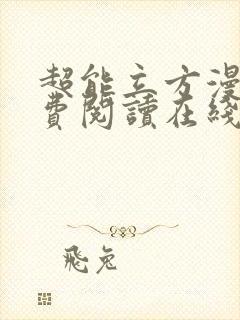 超能立方漫
費閱讀在綫
飛兔